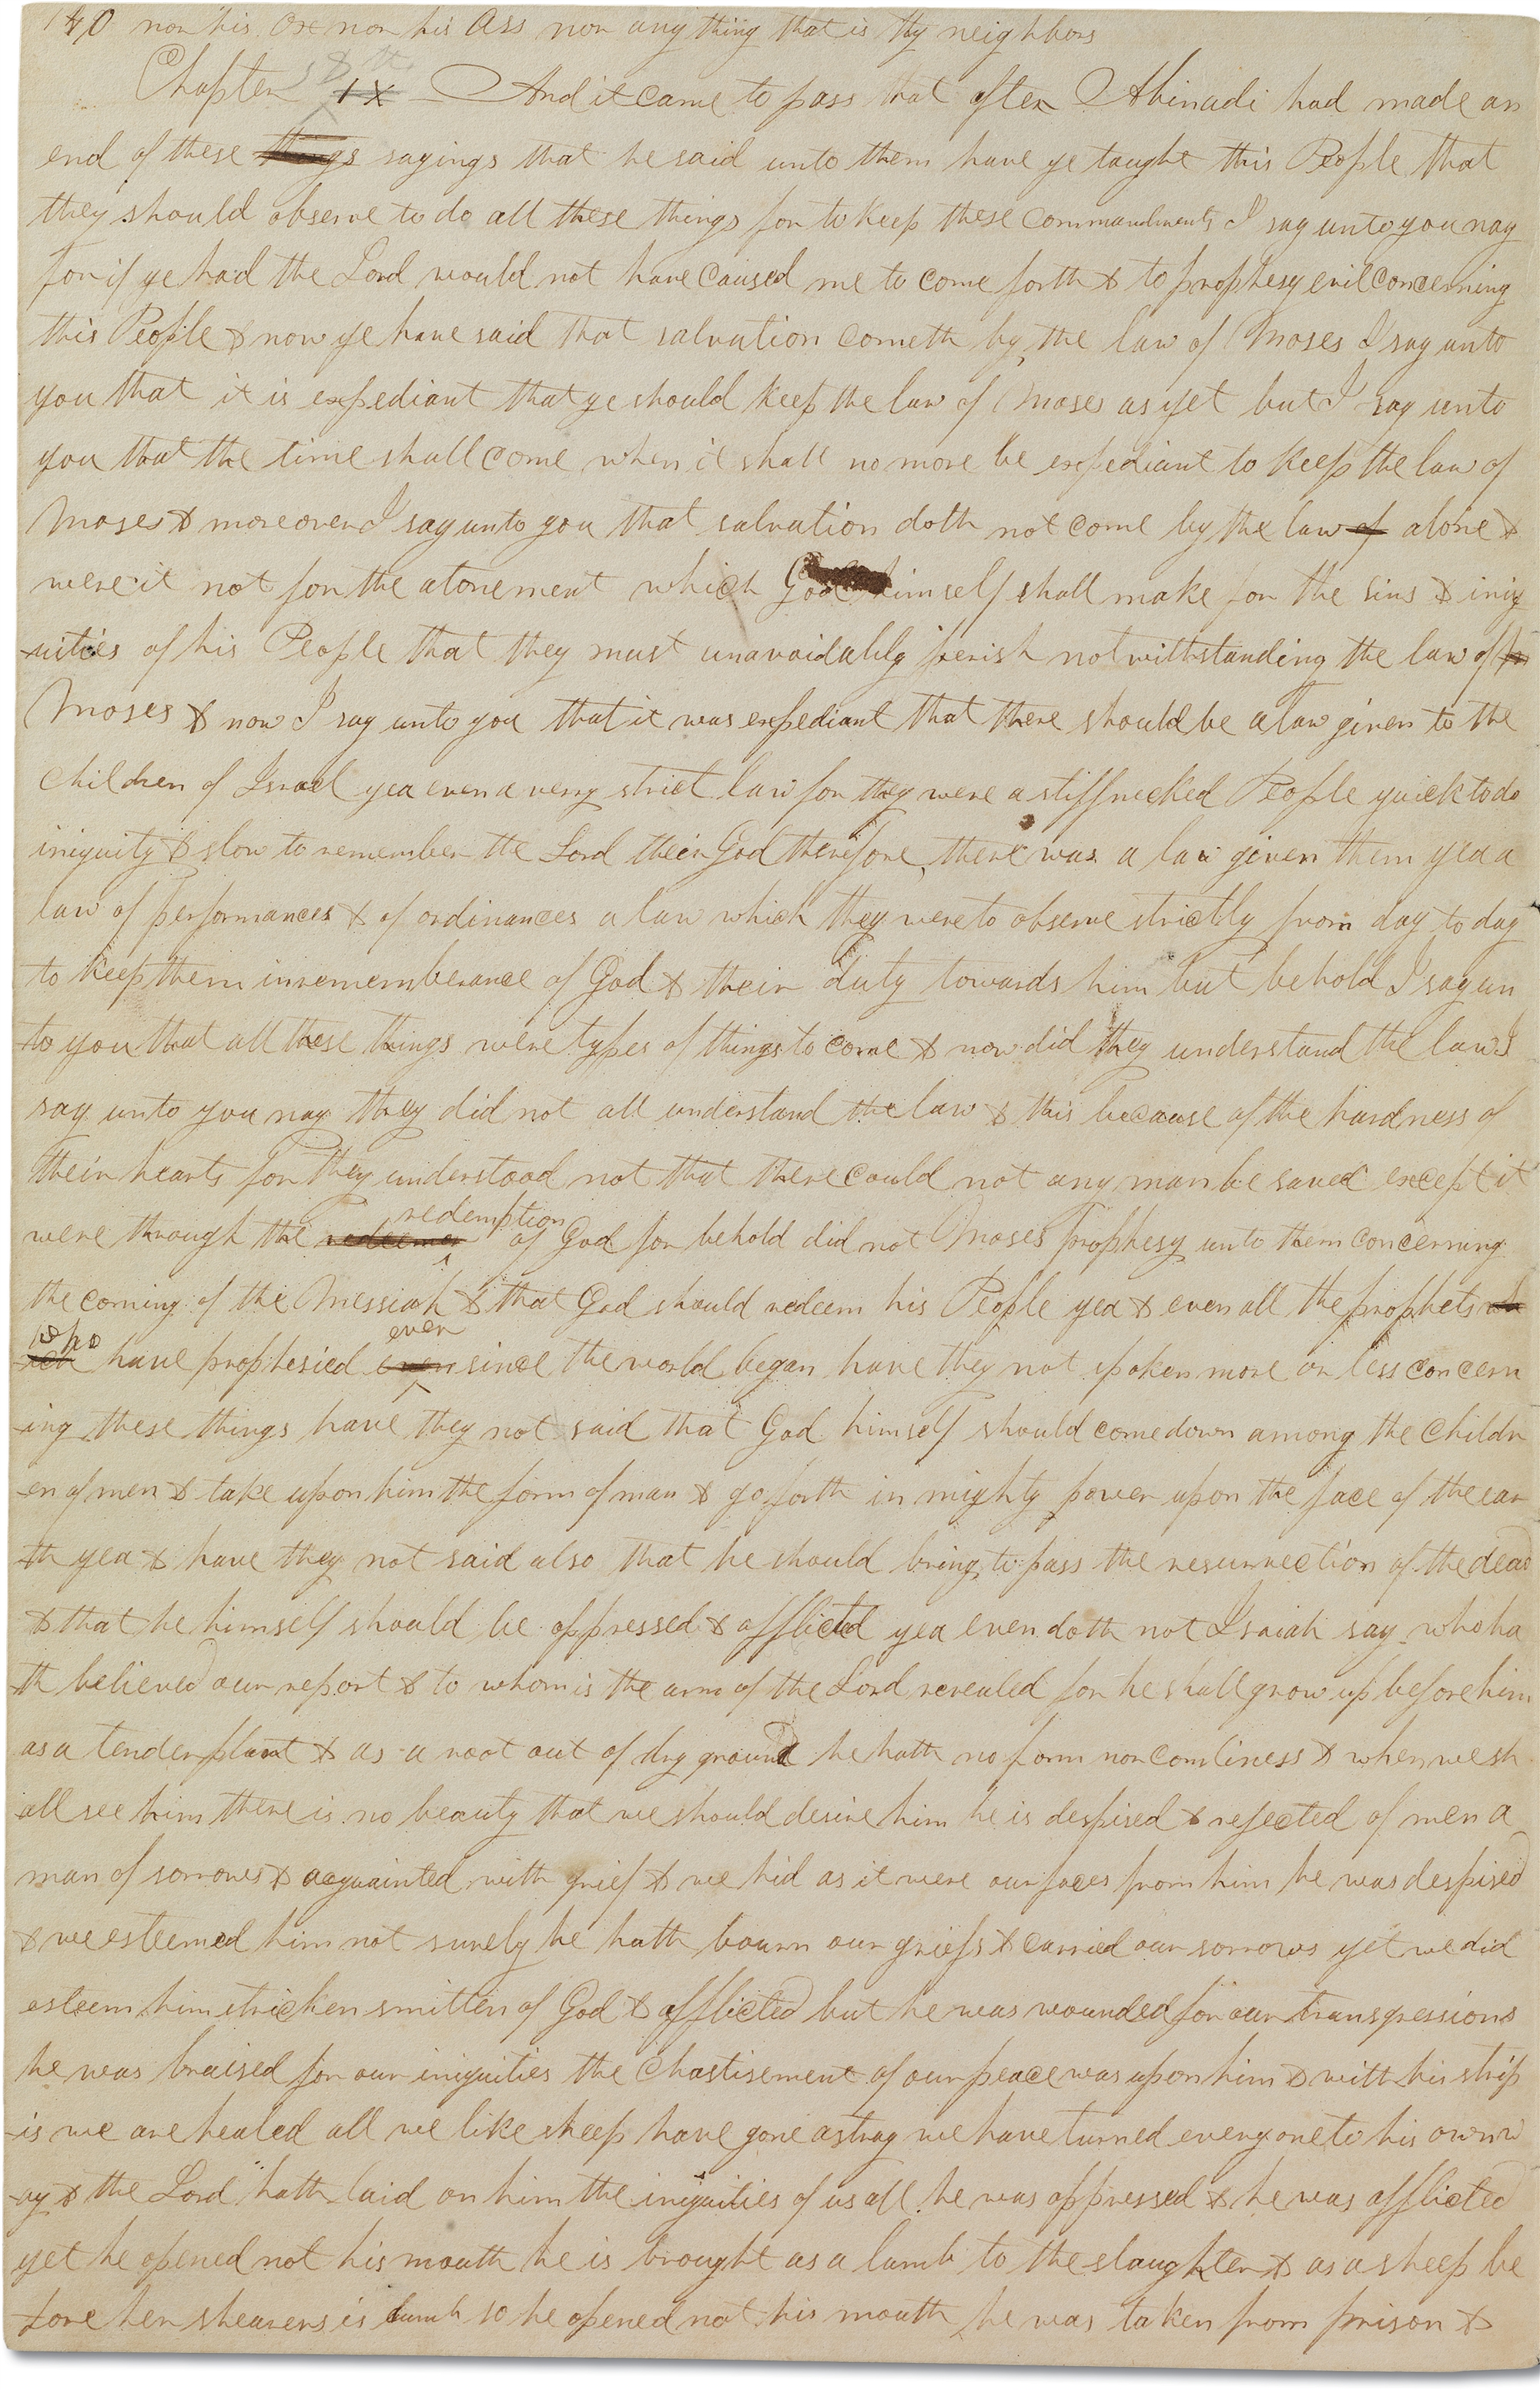 140 nor his ox nor his Ass nor any thing that is thy neighbors
Chapter 8th IX And it came to pass that after Abinadi had made an
end of these things sayings that he said unto them have ye taught this People that
they should observe to do all these things for to keep these commandments I say unto you nay
for if ye had the Lord would not have caused me to come forth & to prophesy evil concerning
this People & now ye have said that salvation cometh by the law of Moses I say unto
you that it is expediant that ye should keep the law of Moses as yet but I say unto
you that the time shall come when it shall no more be expediant to keep the law of
Moses & moreover I say unto you that salvation doth not come by the law of alone &
were it not for the atonement which God himself shall make for the sins & iniq
-uities of his People that they must unavoidably perish notwithstanding the law of
Moses & now I say unto you that it was expediant that there should be a law given to the
Children of Israel yea even a very strict law for they were a stiffnecked People quick to do
iniquity & slow to remember the Lord their God therefore there was a law given them yea a
law of performances & of ordinances a law which they were to observe strictly from day to day
to keep them in rememberance of God & their duty towards him but behold I say un
-to you that all these things were types of things to come & now did they understand the law I
say unto you nay they did not all understand the law & this because of the hardness of
their hearts for they understood not that there could not any man be saved except it
were through the redeemer redemption of God for behold did not Moses prophesy unto them concerning
the coming of the Messiah & that God should redeem his People yea & even all the prophets wh
ich who have prophesied even ever since the world began have they not spoken more or less concern
-ing these things have they not said that God himself should come down among the childr
-en of men & take upon him the form of man & go forth in mighty power upon the face of the ear
-th yea & have they not said also that he should bring to pass the resurrection of the dead
& that he himself should be oppressed & afflicted yea even doth not Isaiah say who ha
-th believed our report & to whom is the arm of the Lord revealed for he shall grow up before him
as a tender plant & as a root out of dry ground he hath no form nor comliness & when we sh
-all see him there is no beauty that we should desire him he is despised & rejected of men a
man of sorrows & acquainted with grief & we hid as it were our faces from him he was despised
& we esteemed him not surely he hath bourn our griefs & carried our sorrows yet we did
esteem him stricken smitten of God & afflicted but he was wounded for our transgressions
he was bruised for our iniquities the chastisement of our peace was upon him & with his strip
-is we are healed all we like sheep have gone astray we have turned every one to his own w
-ay & the Lord hath laid on him the iniquities of us all he was oppressed & he was afflicted
yet he opened not his mouth he is brought as a lamb to the slaughter & as a sheep be
-fore her shearers is dumb so he opened not his mouth he was taken from prison &